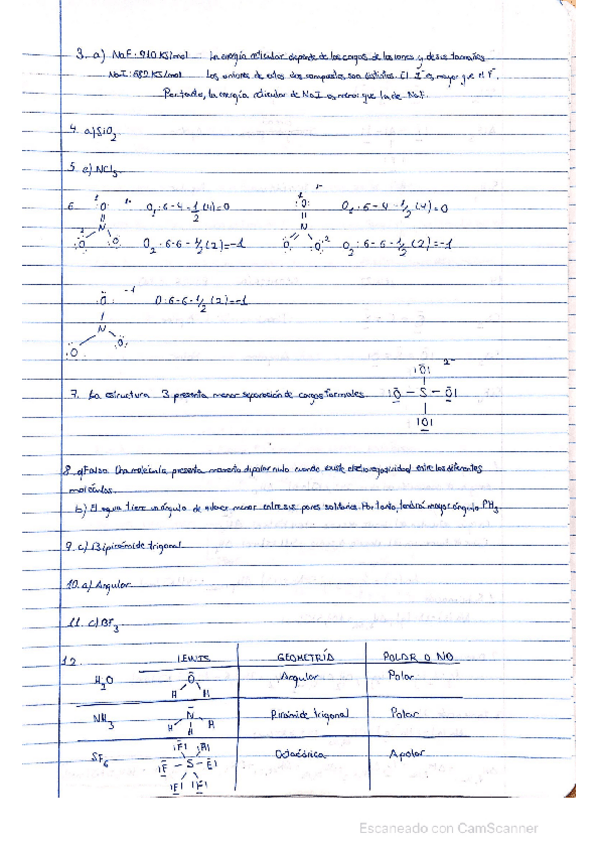 3. a) NaF: 910 KJ/mol La energía reticular depende de las cargas de los iones y de sus tamaños
NaI: 682 KJ/mol Los aniones de estos dos compuestos son distintos. El I⁻ es mayor que el F⁻.
Por tanto, la energía reticular de NaI es menor que la de NaF.
4. a) SiO₂
5. e) NCl₃
6. O₁: 6-4-1/2(4)=0 O₁: 6-4-1/2(4)=0
O₂: 6-6-1/2(2)=-1 O₂: 6-6-1/2(2)=-1
O: 6-6-1/2(2)=-1
7. La estructura 3 presenta menor separación de cargas formales.
8. a) Falso. Una molécula presenta momento dipolar nulo cuando existe electronegatividad entre las diferentes
moléculas.
b) El agua tiene un ángulo de enlace menor entre sus pares solitarios. Por tanto, tendrá mayor ángulo PH₃.
9. c) Bipirámide trigonal
10. a) Angular
11. c) BF₃
12. LEWIS GEOMETRÍA POLAR O NO
H₂O H O H Angular Polar
NH₃ H N H H Pirámide trigonal Polar
SF₆ F F F S F F F Octaédrica Apolar
Escaneado con CamScanner